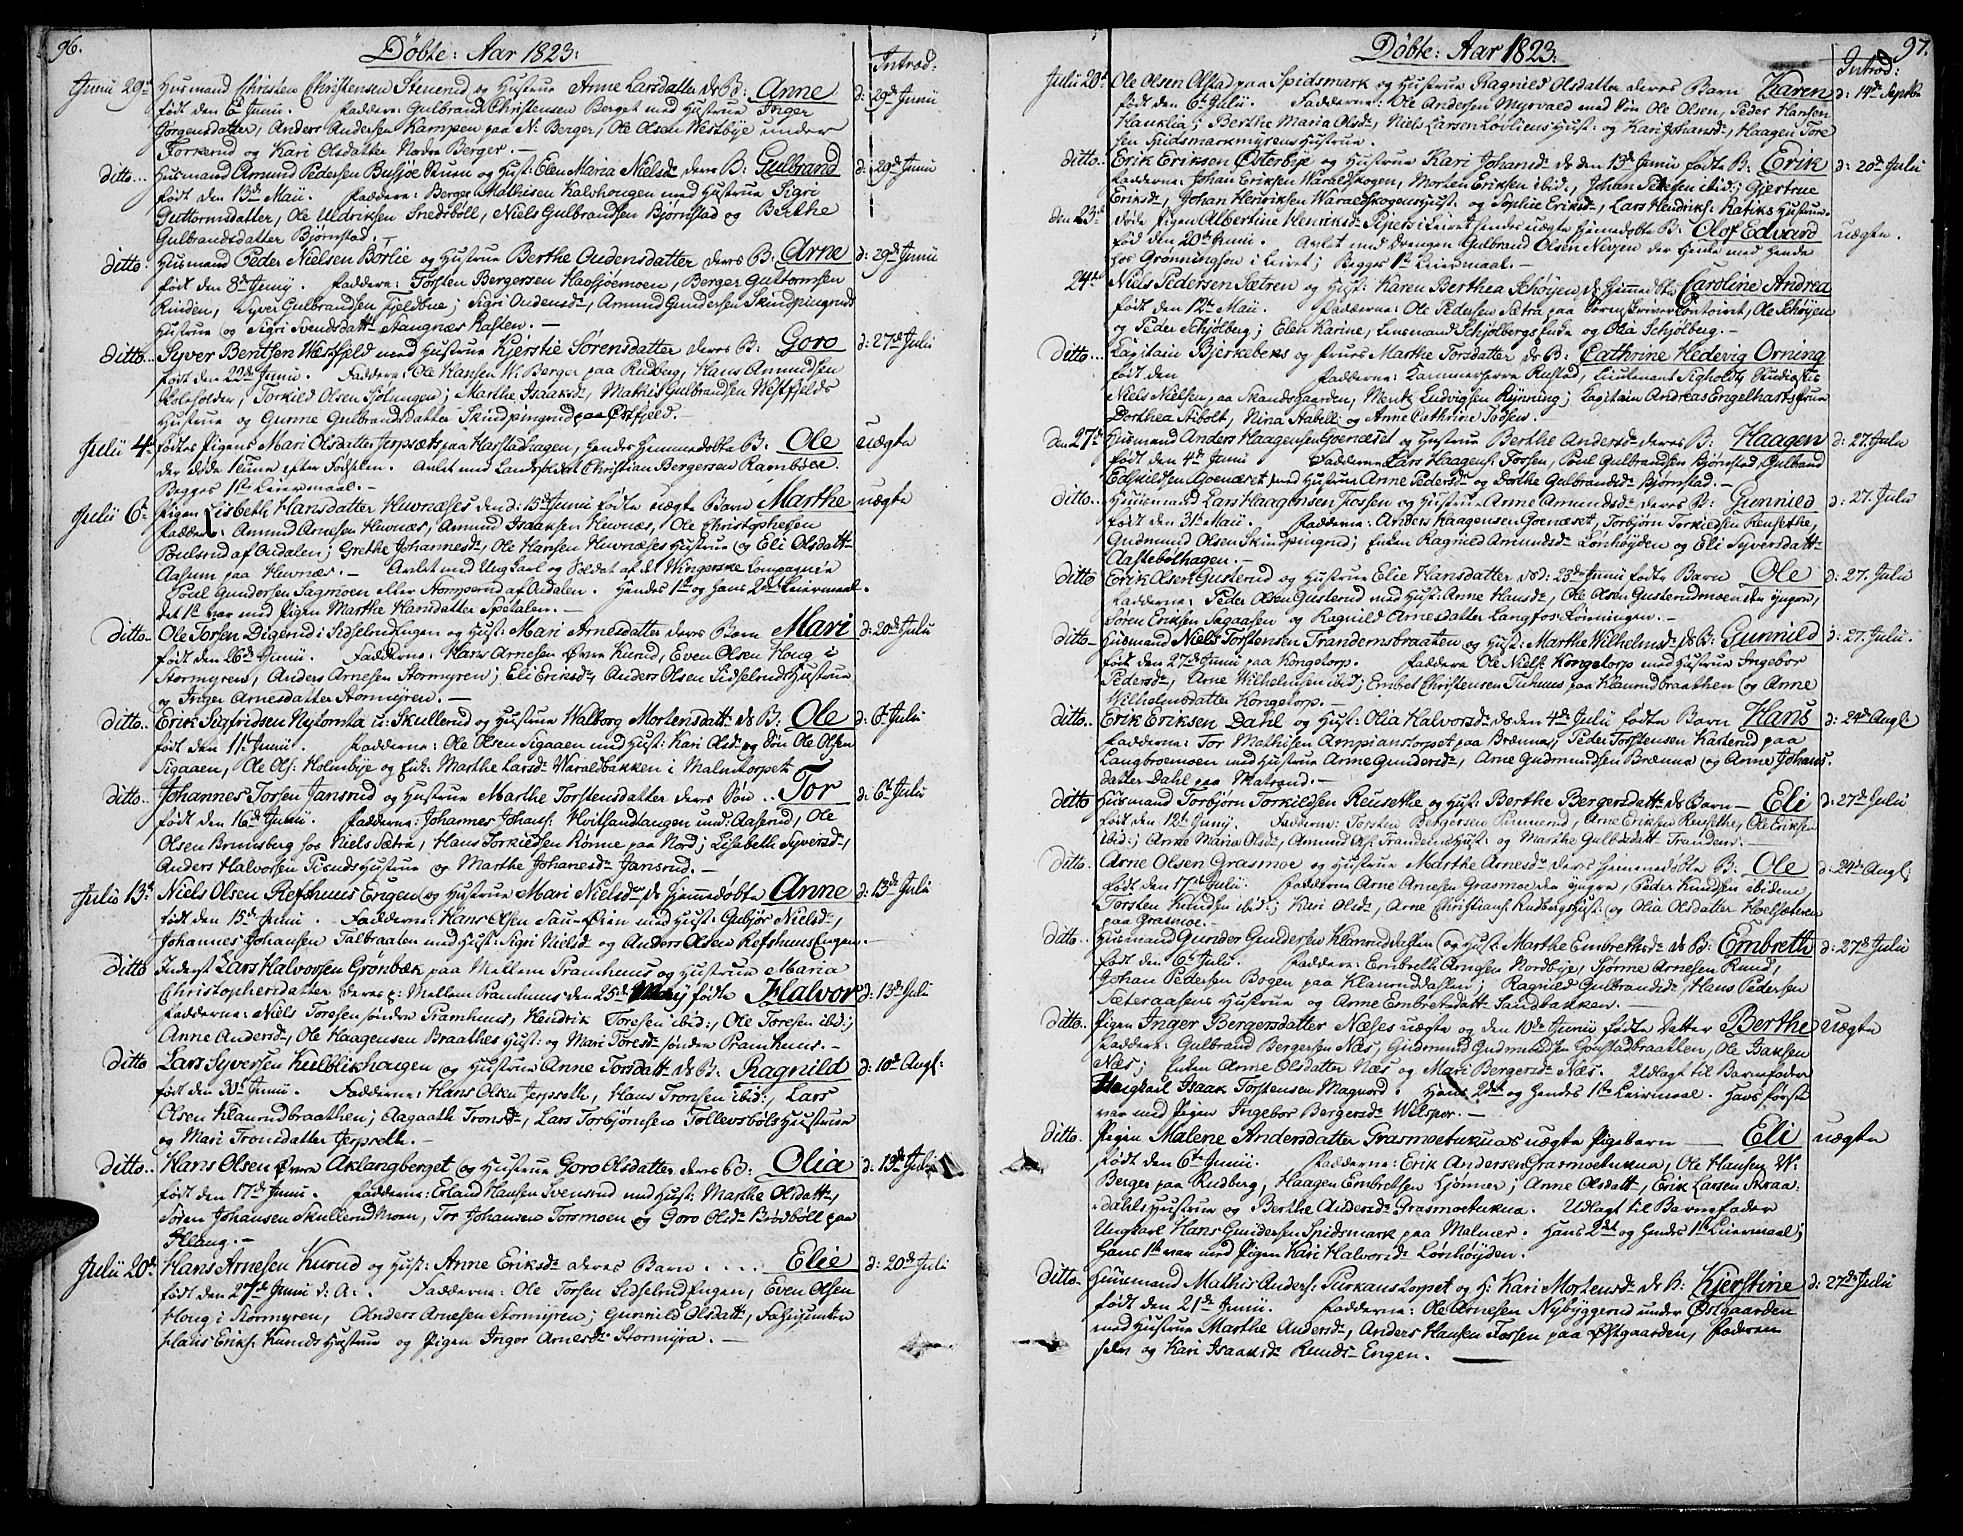 96.
Döbte: Aar 1823:
Introd:
Junii 29de Husmand Christen Christensen Stenerud og Hustrue Anne Larsdatter des B: Anne d: 29de Junii
født den Junii. Faddere: Gulbrand Christensen Berget med Hustrue Inger
Jörgensdatter, Anders Andersen Kampen paa N: Berger, Ole Olsen Westbye under
Torkerud og Kari Olsdatter Nordre Berger.
ditto... Husmand Amund Pedersen og Hust: Elen Maria Nielsdr deres B: Gulbrand d: 29de Junii
født den 13de Maii. Faddere: Berger Mathisen Kalvhougen med Hustrue Sigri
Guttormsdatter, Ole Uldriksen Snedsböll, Niels Gulbrandsen Björnstad og Berthe
Gulbrandsdatter Björnstad.
ditto. Husmand Peder Nielsen Borlie og Hustrue Berthe Oudensdatter deres B: Arne d: 29de Junii
født den 8de Junij. Faddere: Torsten Bergersen Hassjöemoen, Berger Guttormsen
Rinden, Syver Gulbrandsen Fjeldbue; Sigri Oudensdr, Amund Gundersen Skindpingrud
Hustrue og Sigri Svendsdattr Stangnæs Kasten.
ditto.. Syver Bentsen Westfjeld med Hustrue Kjerstie Sörensdatter deres B: Goro d: 27de Julii
født den 22de Junii. Faddere: Ole Hansen W. Berger paa Rudberg, Hans Amundsen
Koleholder, Torkild Olsen Sjölungen; Marthe Isaaksdr, Mathis Gulbrandsen Westfjelds
Hustrue og Gunne Gulbrandsdatter Skindpingrud paa Östfjeld.
Julii 4de fødte Pigens Mari Olsdatter Jerpsæt paa Harstadhagen, hendes Hjemmedöbte B: Ole uægte
der döde 1 Time efter Födselen. Avlet med Landsoldat Christian Bergersen Ramböle.
Begges 1te Leiermaal.
Julii 6te Pigen Lisbeth Hansdatter Hevnæses den d: 15de Junii födte uægte Barn Marthe uægte
Faddere: Amund Arnesen Hevnæs, Amund Isaaksen Hevnæs, Ole Christophersen
Poulsrud af Audalen; Grethe Johannesdr, Ole Hansen Hevnæses Hustrue og Eli Olsdattr
Aasum paa Hevnæs. Avlet med Ungkarl og Soldat af det Wingerske Compagnie
Poul Gundersen Sagmoen eller Stomperud af Audalen. Hendes 1te og hans 2det Leiermaal.
det 1te var med Pigen Marthe Hansdatter Spetalen.
ditto.. Ole Torsen Digerud i Sidselrud Engen og Hust: Mari Arnesdatter deres Barn Mari d: 20de Julii
født den 26de Junii. Fadderne: Hans Arnesen Övre Kurud, Even Olsen Houg i
Stormyren, Anders Arnesen Stormyren; Eli Eriksdr, Anders Olsen Sidselrud Hustrue
og Inger Arnesdatter Stormyren.
ditto.. Erik Sigfridsen Nytomta i: Skullerud og Hustrue Walborg Mortensdattr ds B: Ole d: 6te Julii
født den 11te Junii. Fadderne: Ole Olsen Sigaaen med Hust: Kari Olsdr og Sön Ole Olsen
Sigaaen, Ole Ols: Holmbye og Enk: Marthe Larsdr Waraldbakken i Malmtorpet.
ditto.. Johannes Torsen Jansrud og Hustrue Marthe Torstensdatter deres Sön .. Tor d: 6te Julii
født den 16de Junii. Fadderne: Johannes Johans: Hvitsandtangen und: Aaserud, Ole
Olsen Brunsberg hos Niels Sætra, Hans Torkildsen Rönne paa Nord; Lisebeth Syversdr,
Anders Halvorsen Hustrue og Marthe Johanesdr Jansrud.
Julii 13de Niels Olsen Refshuus Engen og Hustrue Mari Nielsdr ds Hjemedöbte Anne d: 13de Julii
født den 15de Junii. Fadderne: Hans Olsen med Hust: Gubjör Nielsdr,
Johannes Johansen Talbraaten med Hust: Sigri Nielsdr og Anders Olsen Refshuus Engen.
ditto Inderst Lars Halvorsen Grönbæk paa Mellem Pramhuus og Hustrue Maria
Christophersdatter deres p: Mellem Pramhuus den 25de Maij fødte Halvor d: 13de Juli
Fadderne: Niels Toresen söndre Pramhuus, Hendrik Toresen ibid:, Ole Toresen ibid;
Anne Andersdr, Ole Haagensen Braathes Hust: og Mari Toresdr söndre Pramhuus.
ditto Lars Syversen Kulblikhougen og Hustrue Anne Torsdattr ds B: Ragnild d: 10de Augl:
født den 30te Junii. Fadderne: Hans Olsen Jerpseth, Hans Tronsen ibid:, Lars
Olsen Klanrudbraathen; Aagaath Tronsdr, Lars Torbjörnsen Tollevsböls Hustrue
og Mari Tronsdatter Jerpseth.
ditto.. Hans Olsen Övre Aklangberget og Hustrue Goro Olsdatter deres B: Olia d: 13de Julii
født den 17de Junii. Fadderne: Erland Hansen Svensrud med Hust: Marthe Olsdattr,
Sören Johansen Skullerud Moen, Tor Johansen Torsmoen og Goro Olsdr Brödböll paa
Allang.
Julii 20de Hans Arnesen Kurud og Hust: Anne Eriksdr deres Barn .... Elie d: 20de Juli
født den 27de Junii d: A. Fadderne: Ole Torsen Sidselrud Engen, Even Olsen
Houg i Stormyren, Anders Arnesen Stormyren; Gunnild Olsdattr,
Hans Eriks: Kuruds Hustrue og Pigen Inger Arnesdr Stormyra.
97.
Döbte: Aar 1823:
Introd:
Julii 20de Ole Olsen Alstad paa Spidsmark og Hustrue Ragnild Olsdatter deres Barn Karen d: 14de Septbr
født den 6te Julii. Fadderne: Ole Andersen Myrvald med Sön Ole Olsen, Peder Hansen
Hauklia; Berthe Maria Olsdr, Niels Larsen Lövliens Hust: og Kari Johansdr, Haagen Tore
sen Spidsmarkmyrens Hustrue.
ditto.. Erik Eriksen Österbye og Hustrue Kari Johansdr ds den 13de Junii fødte B: Erik d: 20de Julii
Fadderne: Johan Eriksen Waraldskogen, Morten Eriksen ibid:, Johan Petersen ibid; Gjertrue
Eriksdr, Johan Henriksen Waraldskogens Hust: og Sophie Eriksdr, Lars Hendriks: Ratiks Hustrue.
den 23de döde Pigen Albertine Henriksdr Pipers i Leiret hendes uægte Hjemedöbte B: Olof Edvard uægte.
fød den 20de Junii. Avlet med Drengen Gulbrand Olsen Nevsen der tjente med hende
hos Grönningson i Leiret; Begges 1te Leiermaal.
24de Niels Pedersen Sætren og Hust: Karen Berthea Schöyen ds Hjemedöbte Caroline Andrea
født den 12te Maii. Faddere: Ole Pedersen Sætra paa Sorenskriver Contoiret, Ole Schöyen
og Peder Schjölberg; Elen Karine, Lensmand Schjölbergs Enke og Olia Schjölberg.
ditto... Capitain Bjerkebeks og Frues Marthe Torsdatter ds B: Cathrine Hedevig Orning
født den Fadderne: Kammerherre Rustad, Lieutenant Sigholdt, Studiosus
Niels Nielsen, paa Skandsgaarden, Menk Ludvigsen Rynning; Capitain Andreas Engelharts Frue
Dorthea Stibolt, Nina Stabell og Anne Cathrine Todsen.
den 27de Husmand Anders Haagensen Goenæset og Hustrue Berthe Andersdr deres B: Haagen d: 27. Julii
født den 4de Junii Fadderne Lars Haagens: Fossen, Poul Gulbrandsen Björnstad, Gulbrand
Edskildsen Goenæset med Hustrue Anne Pedersdr og Dorthe Gulbrandsdr Björnstad.
ditto.. Huusmand Lars Haagensen Fossen og Hustrue Anne Amundsdr deres B: Gunnild d: 27. Julii
født den 31te Maii. Fadderne: Anders Haagensen Goenæset, Torbjörn Torkildsen Reusethe,
Gudmund Olsen Skindpingrud; Enken Ragnild Amundsdr Lönhöyden og Eli Syversdattr
Aastebölhagen.
ditto Erik Olsen Gusterud og Hustrue Elie Hansdatter ds d: 23de Junii fødte Barn Ole d: 27. Julii
Fadderne: Peder Olsen Gusterud med Hust: Anne Hansdr, Ole Olsen Gusterudmoen den yngre,
Sören Eriksen Sagaasen og Ragnild Arnesdatter Langfos Lönningen.
ditto.. Husmand Niels Torstensen Trandemsbraaten og Hust: Marthe Wilhelmsdr ds B: Gunnild d: 27. Julii.
født den 27de Junii paa Kongetorp. Faddere Ole Niels: Kongetorp med Hustrue Ingebor
Pedersdr, Arne Wilhelmsen ibid; Embret Christensen Tuhuus paa Klanrudbraathen og Anne
Wilhelmsdatter Kongetorp.
ditto.. Erik Eriksen Dahl og Hust: Olia Halvorsdr ds den 4de Julii fødte Barn Hans d: 24de Augl:
Fadderne: Tor Mathisen Ampianstorpet paa Brænna, Peder Torstensen Kasterud paa
Langbroemoen med Hustrue Arne Gundersdr, Arne Gudmundsen Brænna og Anne Johans
datter Dahl paa Matrand.
ditto Husmand Torbjörn Torkildsen Reusethe og Hust: Berthe Bergersdattr ds Barn — Eli d: 27de Julii
født den 12te Junij. Fadderne: Torsten Bergersen Pinnerud, Arne Eriksen Reusethe, Ole Eriksen
ibid:; Anne Maria Olsdr, Amund Ols: Trandems Hust: og Marthe Gulbdattr Trandem.
ditto. Arne Olsen Grasmoe og Hustrue Marthe Arnesdr deres Hjemmedöbte B: Ole d: 24de Augl:
født den 17de Julii. Fadderne Arne Arnesen Grasmoe den yngre, Peder Knudsen ibidem,
Torsten Knudsen ibid.; Kari Olsdr, Arne Christians: Rudbergs Hust: og Olia Olsdatter Hoelsæteren
paa Grasmoe.
ditto.. Husmand Gunder Gundersen Klanruddasten og Hust: Marthe Embrethsdr ds B: Embreth d: 27de Julii
født den 6te Julii. Fadderne: Embreth Arnesen Nordbye, Sjönne Arnesen Ruud,
Johan Pedersen Bogen paa Klanruddasten; Ragnild Gulbrandsdr, Hans Pedersen
Sæteraasens Hustrue og Arne Embretsdattr Sandbakken.
ditto.. Pigen Inger Bergersdatter Næses uægte og den 10de Junii fødte Datter Berthe uægte
Faddere: Gulbrand Bergersen Næs, Gudmund Gudmundsen Gonstadbraatten, Ole Isaksen
Næs; Enken Anne Olsdatter Næs og Mari Bergersdr Næs. Udlagt til Barnefader
Ungkarl Isaak Torstensen Magnord. Hans 2det og Hendes 1te Leiermaal. Hans første
var med Pigen Ingebor Bergersdr Wilspor.
ditto. Pigen Malene Andersdatter Grasmoetukuas uægte Pigebarn — Eli uægte
født den 6te Junii. Fadderne: Erik Andersen Grasmoetukua, Ole Hansen W:
Berger paa Rudberg, Haagen Embretsen Sjönner; Anne Olsdattr, Erik Larsen Skraa:
dahls Hustrue og Berthe Andersdr Grasmoetukua. Udlagt til Barnefader
Ungkarl Hans Gundersen Spidsmark paa Malmer. Hans 2det og hendes 1te Leiermaal;
hans 1te var med Pigen Kari Halvorsdr Lönhöyden.
ditto.. Huusmand Mathis Anders: Purkanstorpet og H: Kari Mortensdr ds B: Kjerstine d: 27de Julii
født den 21de Junii. Fadderne: Ole Arnesen Nybyggerud under Östgaarden
med Hustrue Marthe Andersdr, Anders Hansen Fossen paa Östgaarden, Faderen
selv og Kari Isaaksdr Ruuds-Engen.